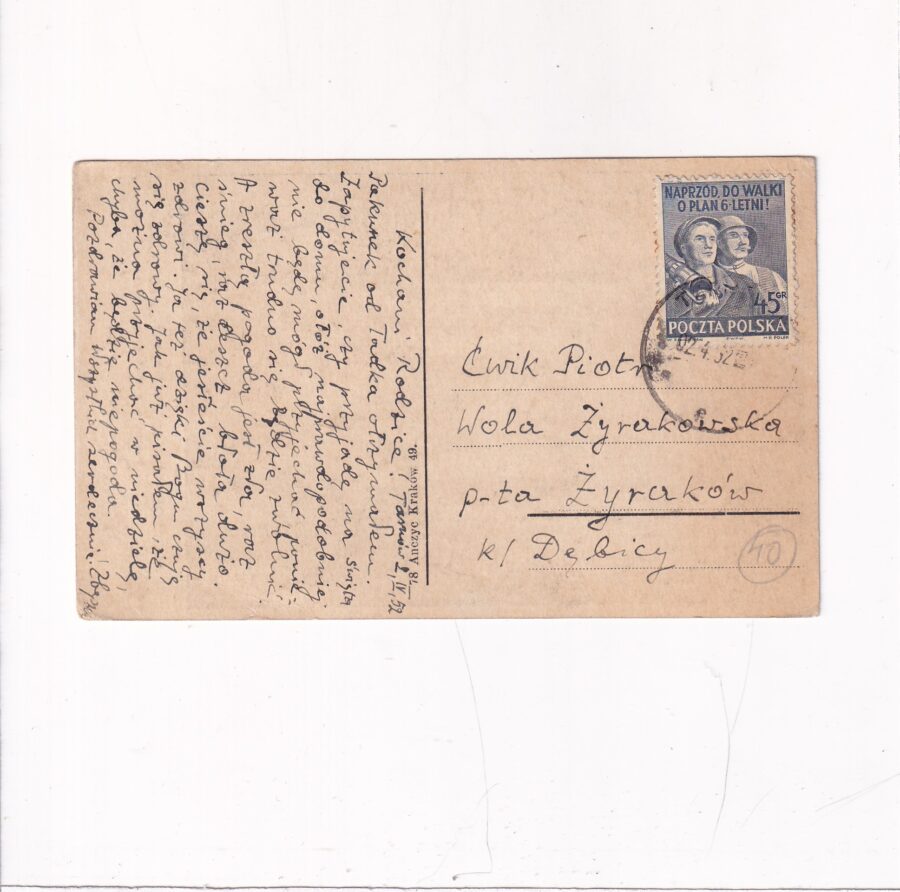 Kochani Rodzice! Tarnów 2, IV, 52
Pakunek od Tadka otrzymałem.
Zapytujecie, czy przyjadę na święta
do domu, otóż najprawdopodobniej
nie będę mógł przyjechać ponie-
waż trudno się będzie zwolnić.
A zresztą pogoda jest zła, raz
śnieg, raz deszcz błota dużo
Cieszę się, że jesteście wszyscy
zdrowi. Ja też dzięki Bogu czuję
się zdrowy. Jak już pisałem, że
można przyjechać w niedzielę,
chyba, że będzie niepogoda.
Pozdrawiam Wszystkich serdecznie!
78 Anczyc Kraków 49.
NAPRZÓD, DO WALKI
O PLAN 6-LETNI!
45 GR
POCZTA POLSKA
02.4.52
Ćwik Piotr
Wola Żyrakowska
p-ta Żyraków
k/ Dębicy
40